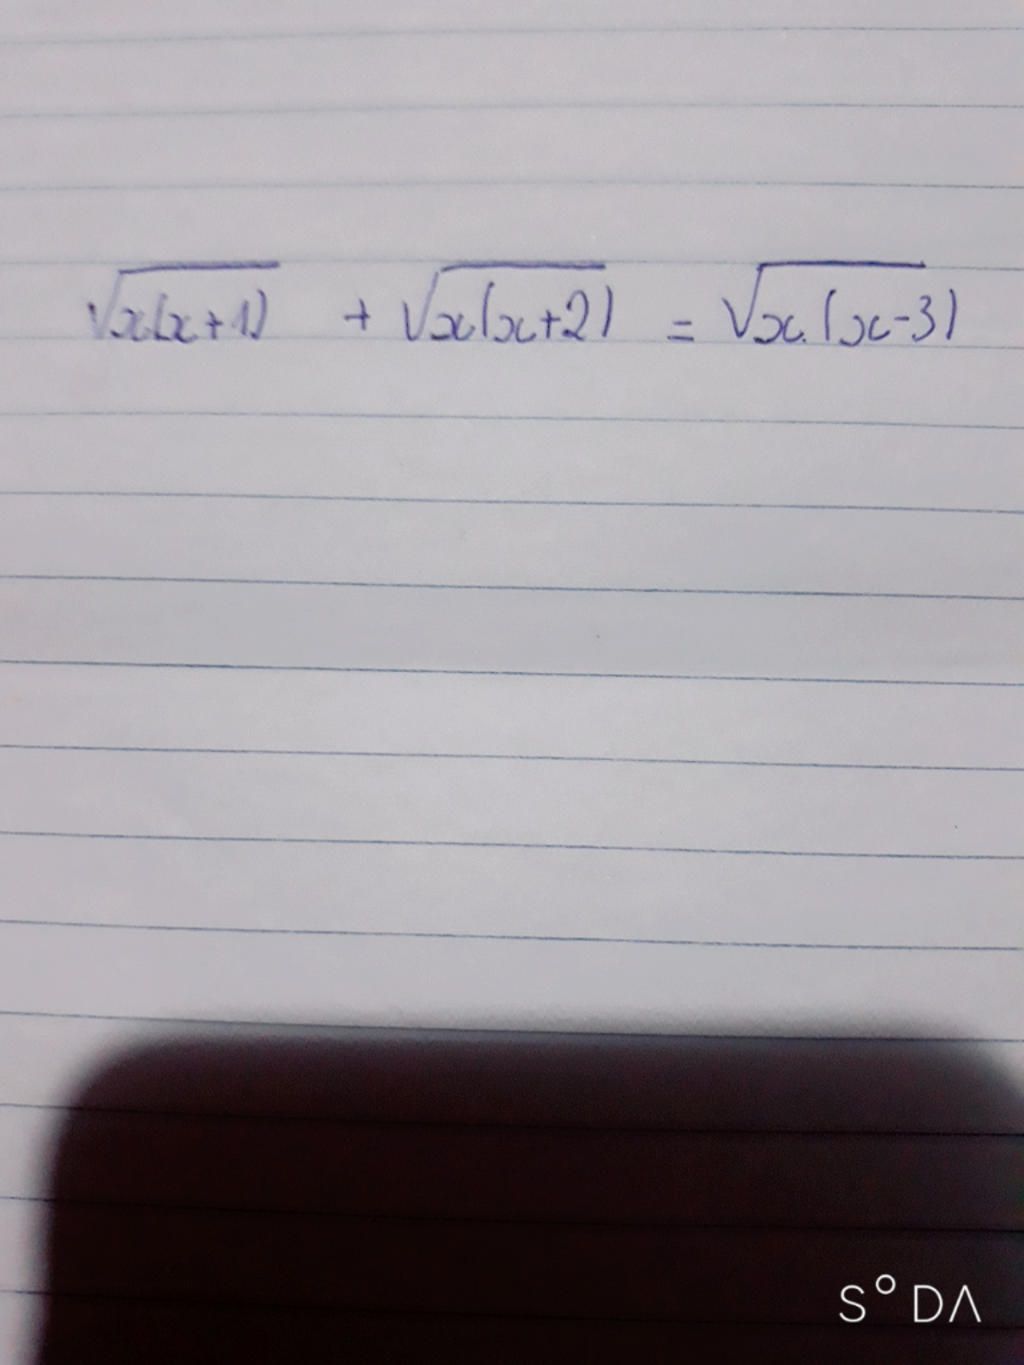 √x(x+1) + √x(x+2) = √x.(x-3)
S°DA